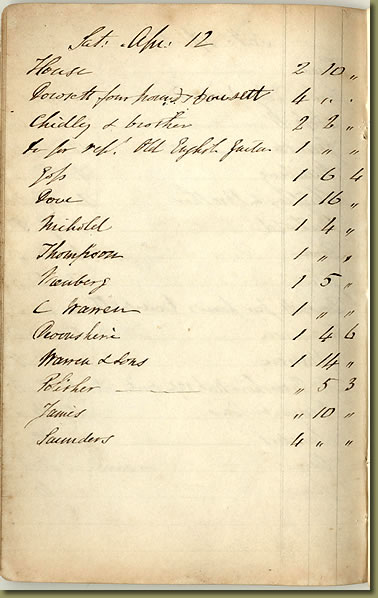 Sat: Apr: 12
House 2 10 "
Dowsett four pounds Dowsett 4 " "
Chidley & brother 2 2 "
do for rep.g Old English Guitar 1 " "
Goss 1 6 4
Dove 1 16 "
Nichold 1 4 "
Thompson 1 " "
Nunberg 1 5 "
C Warren 1 " "
Devonshire 1 4 6
Warren & Sons 1 14 "
Polisher " 5 3
James " 10 "
Saunders 4 " "